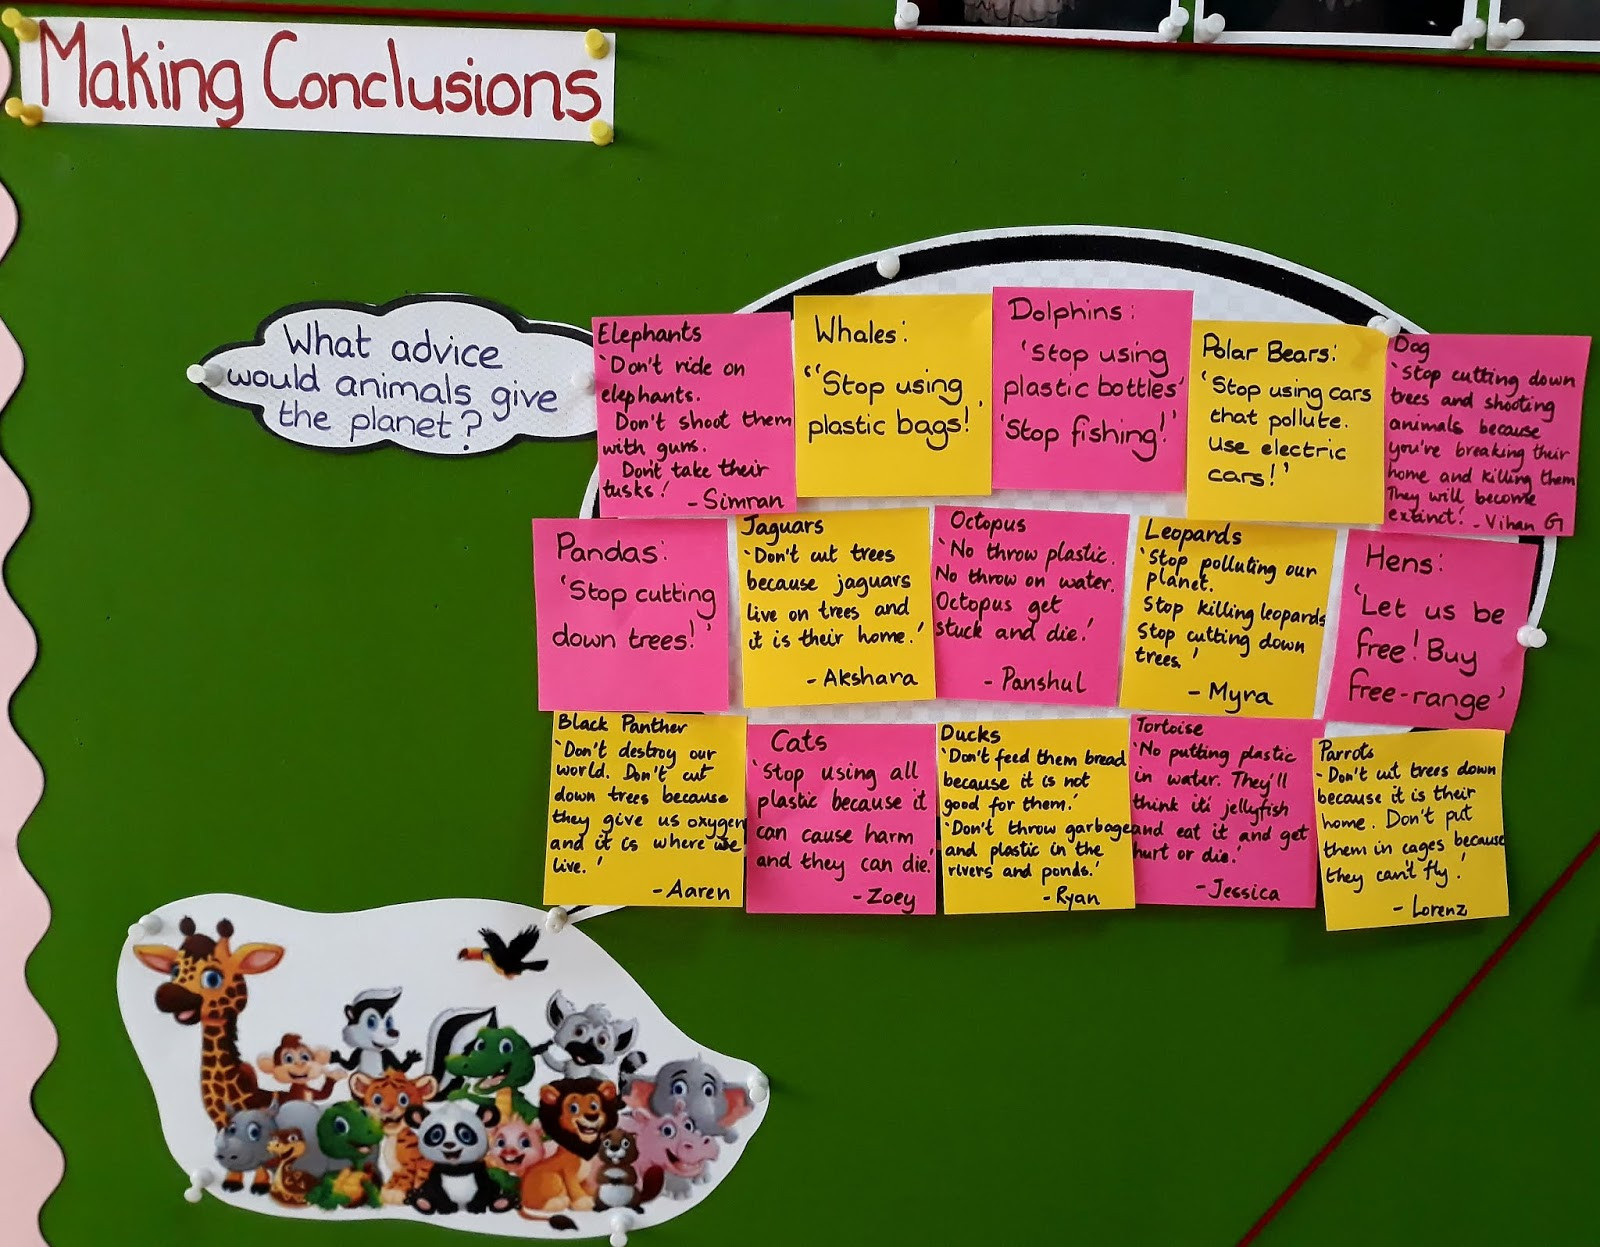 Making Conclusions
What advice
would animals give
the planet?
Elephants
'Don't ride on
elephants.
Don't shoot them
with guns.
Don't take their
tusks!'
- Simran
Whales:
"Stop using
plastic bags!'
Dolphins:
'Stop using
plastic bottles'
'Stop fishing!'
Polar Bears:
'Stop using cars
that pollute.
use electric
cars!'
Dog
'Stop cutting down
trees and shooting
animals because
you're breaking their
home and killing them
They will become
extinct!' - Vihan G
Pandas:
'Stop cutting
down trees!'
Jaguars
'Don't cut trees
because jaguars
live on trees and
it is their home.'
- Akshara
Octopus
'No throw plastic.
No throw on water.
Octopus get
stuck and die.'
- Panshul
Leopards
'Stop polluting our
planet.
Stop killing leopards
Stop cutting down
trees.'
- Myra
Hens:
'Let us be
free! Buy
free-range'
Black Panther
'Don't destroy our
world. Don't cut
down trees because
they give us oxygen
and it is where we
live.'
- Aaren
Cats
'Stop using all
plastic because it
can cause harm
and they can die.'
- Zoey
Ducks
'Don't feed them bread
because it is not
good for them.'
'Don't throw garbage
and plastic in the
rivers and ponds.'
- Ryan
Tortoise
'No putting plastic
in water. They'll
think it's jellyfish
and eat it and get
hurt or die.'
- Jessica
Parrots
'Don't cut trees down
because it is their
home. Don't put
them in cages because
they can't fly.'
- Lorenz